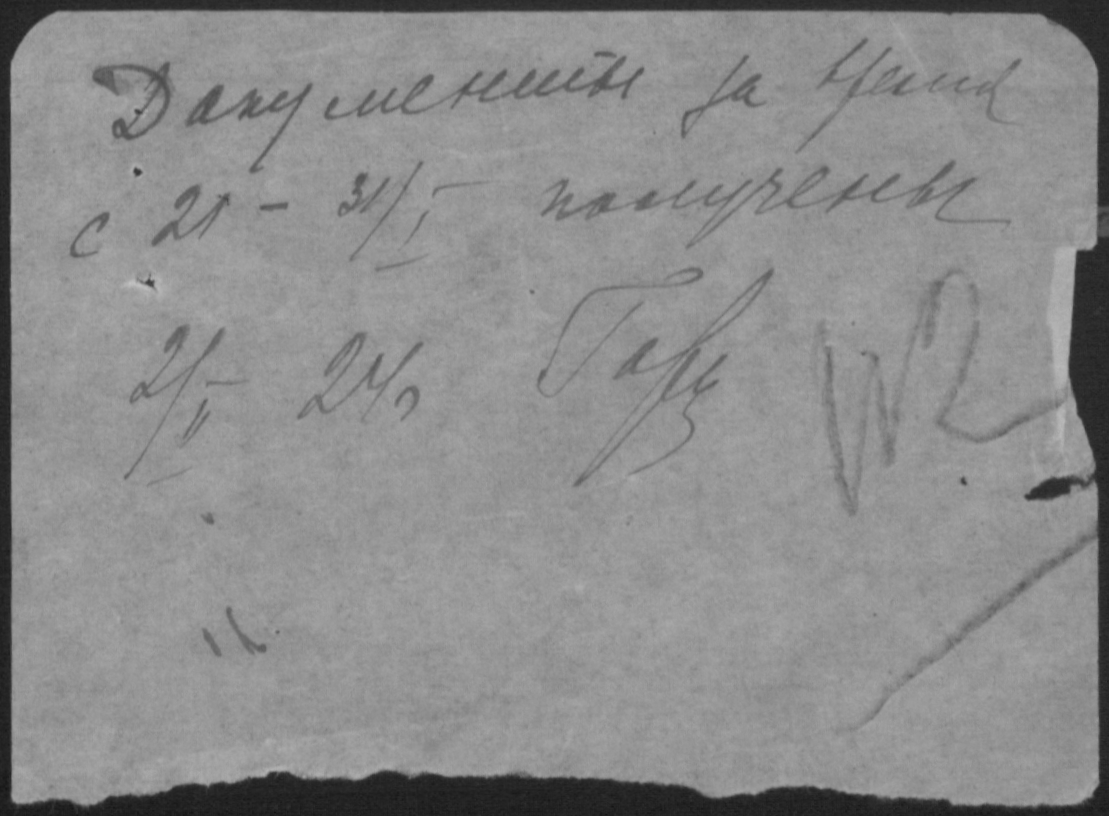 Документы за время
с 21 - 31/I получены
2/II 24г